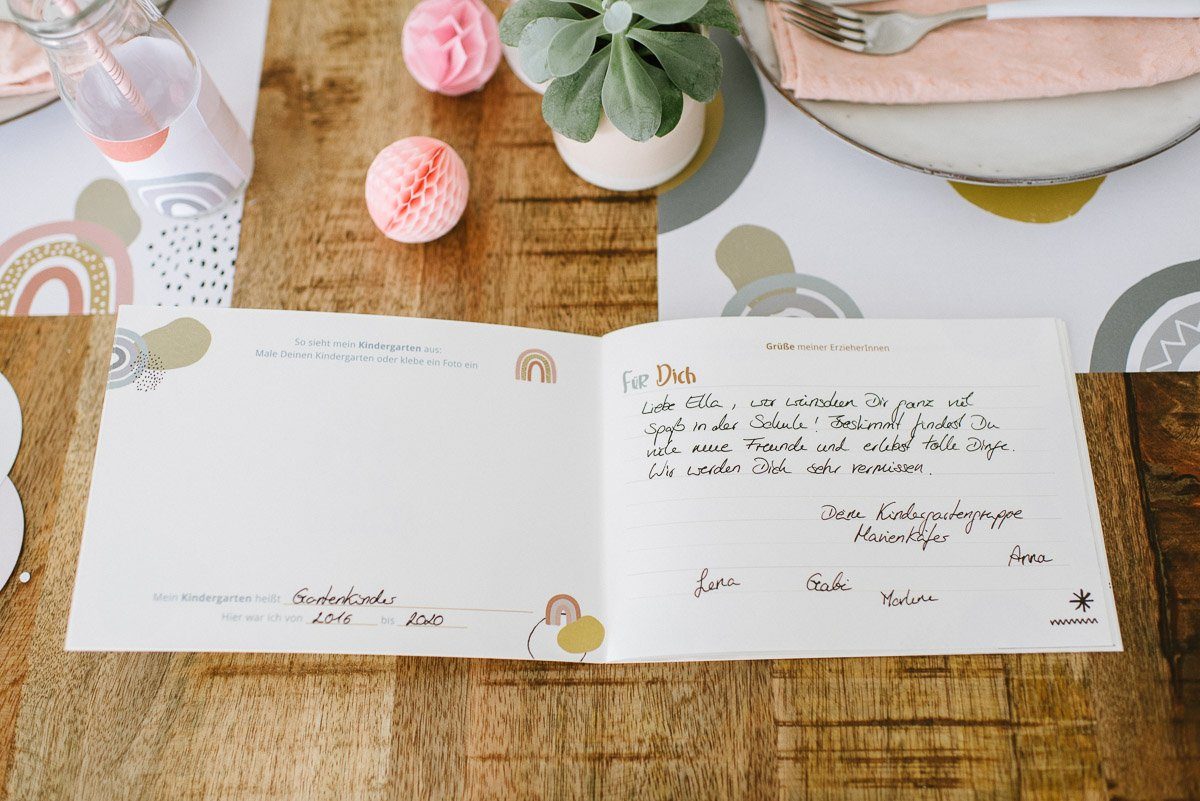 So sieht mein Kindergarten aus:
Male Deinen Kindergarten oder klebe ein Foto ein
Mein Kindergarten heißt Gartenkinder
Hier war ich von 2016 bis 2020
Grüße meiner ErzieherInnen
FÜR Dich
Liebe Ella, wir wünschen Dir ganz viel
Spaß in der Schule! Bestimmt findest Du
viele neue Freunde und erlebst tolle Dinge.
Wir werden Dich sehr vermissen.
Deine Kindergartengruppe
Marienkäfer
Anna
Lena Gabi
Marlene